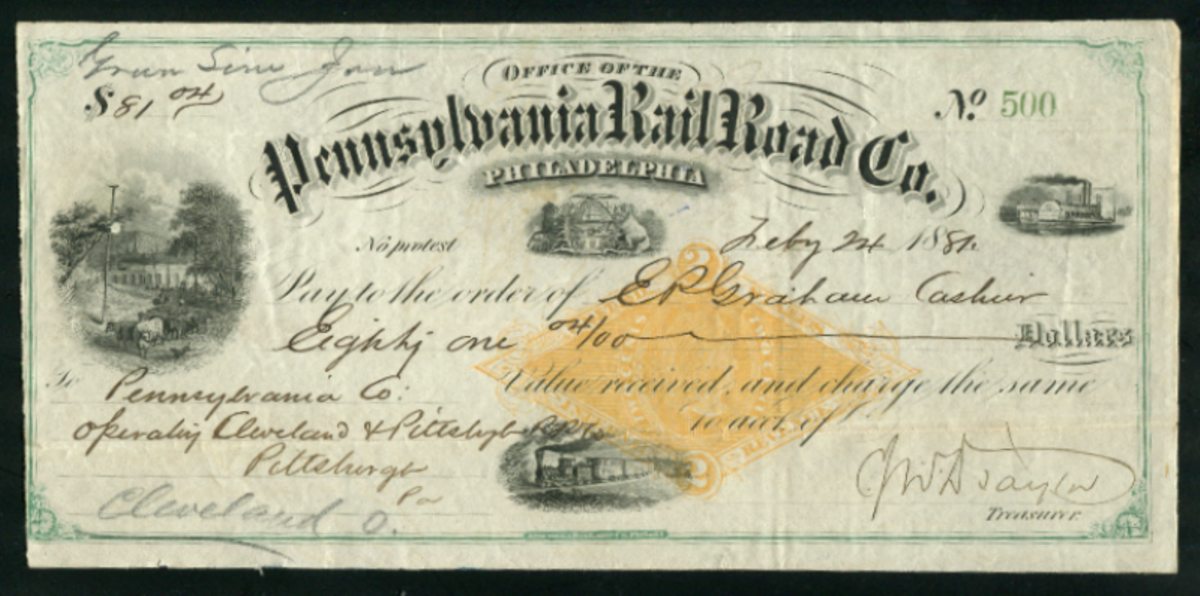 $81 04
OFFICE OF THE
Pennsylvania Rail Road Co.
PHILADELPHIA
No. 500
No protest
Feby 24 1881
Pay to the order of E P Graham Cashier
Eighty one 04/00 Dollars
Value received, and charge the same
to acct. of
To Pennsylvania Co.
operating Cleveland & Pittsbgh
Pittsburgh
Pa
Cleveland O.
Taylor
Treasurer.
2
2